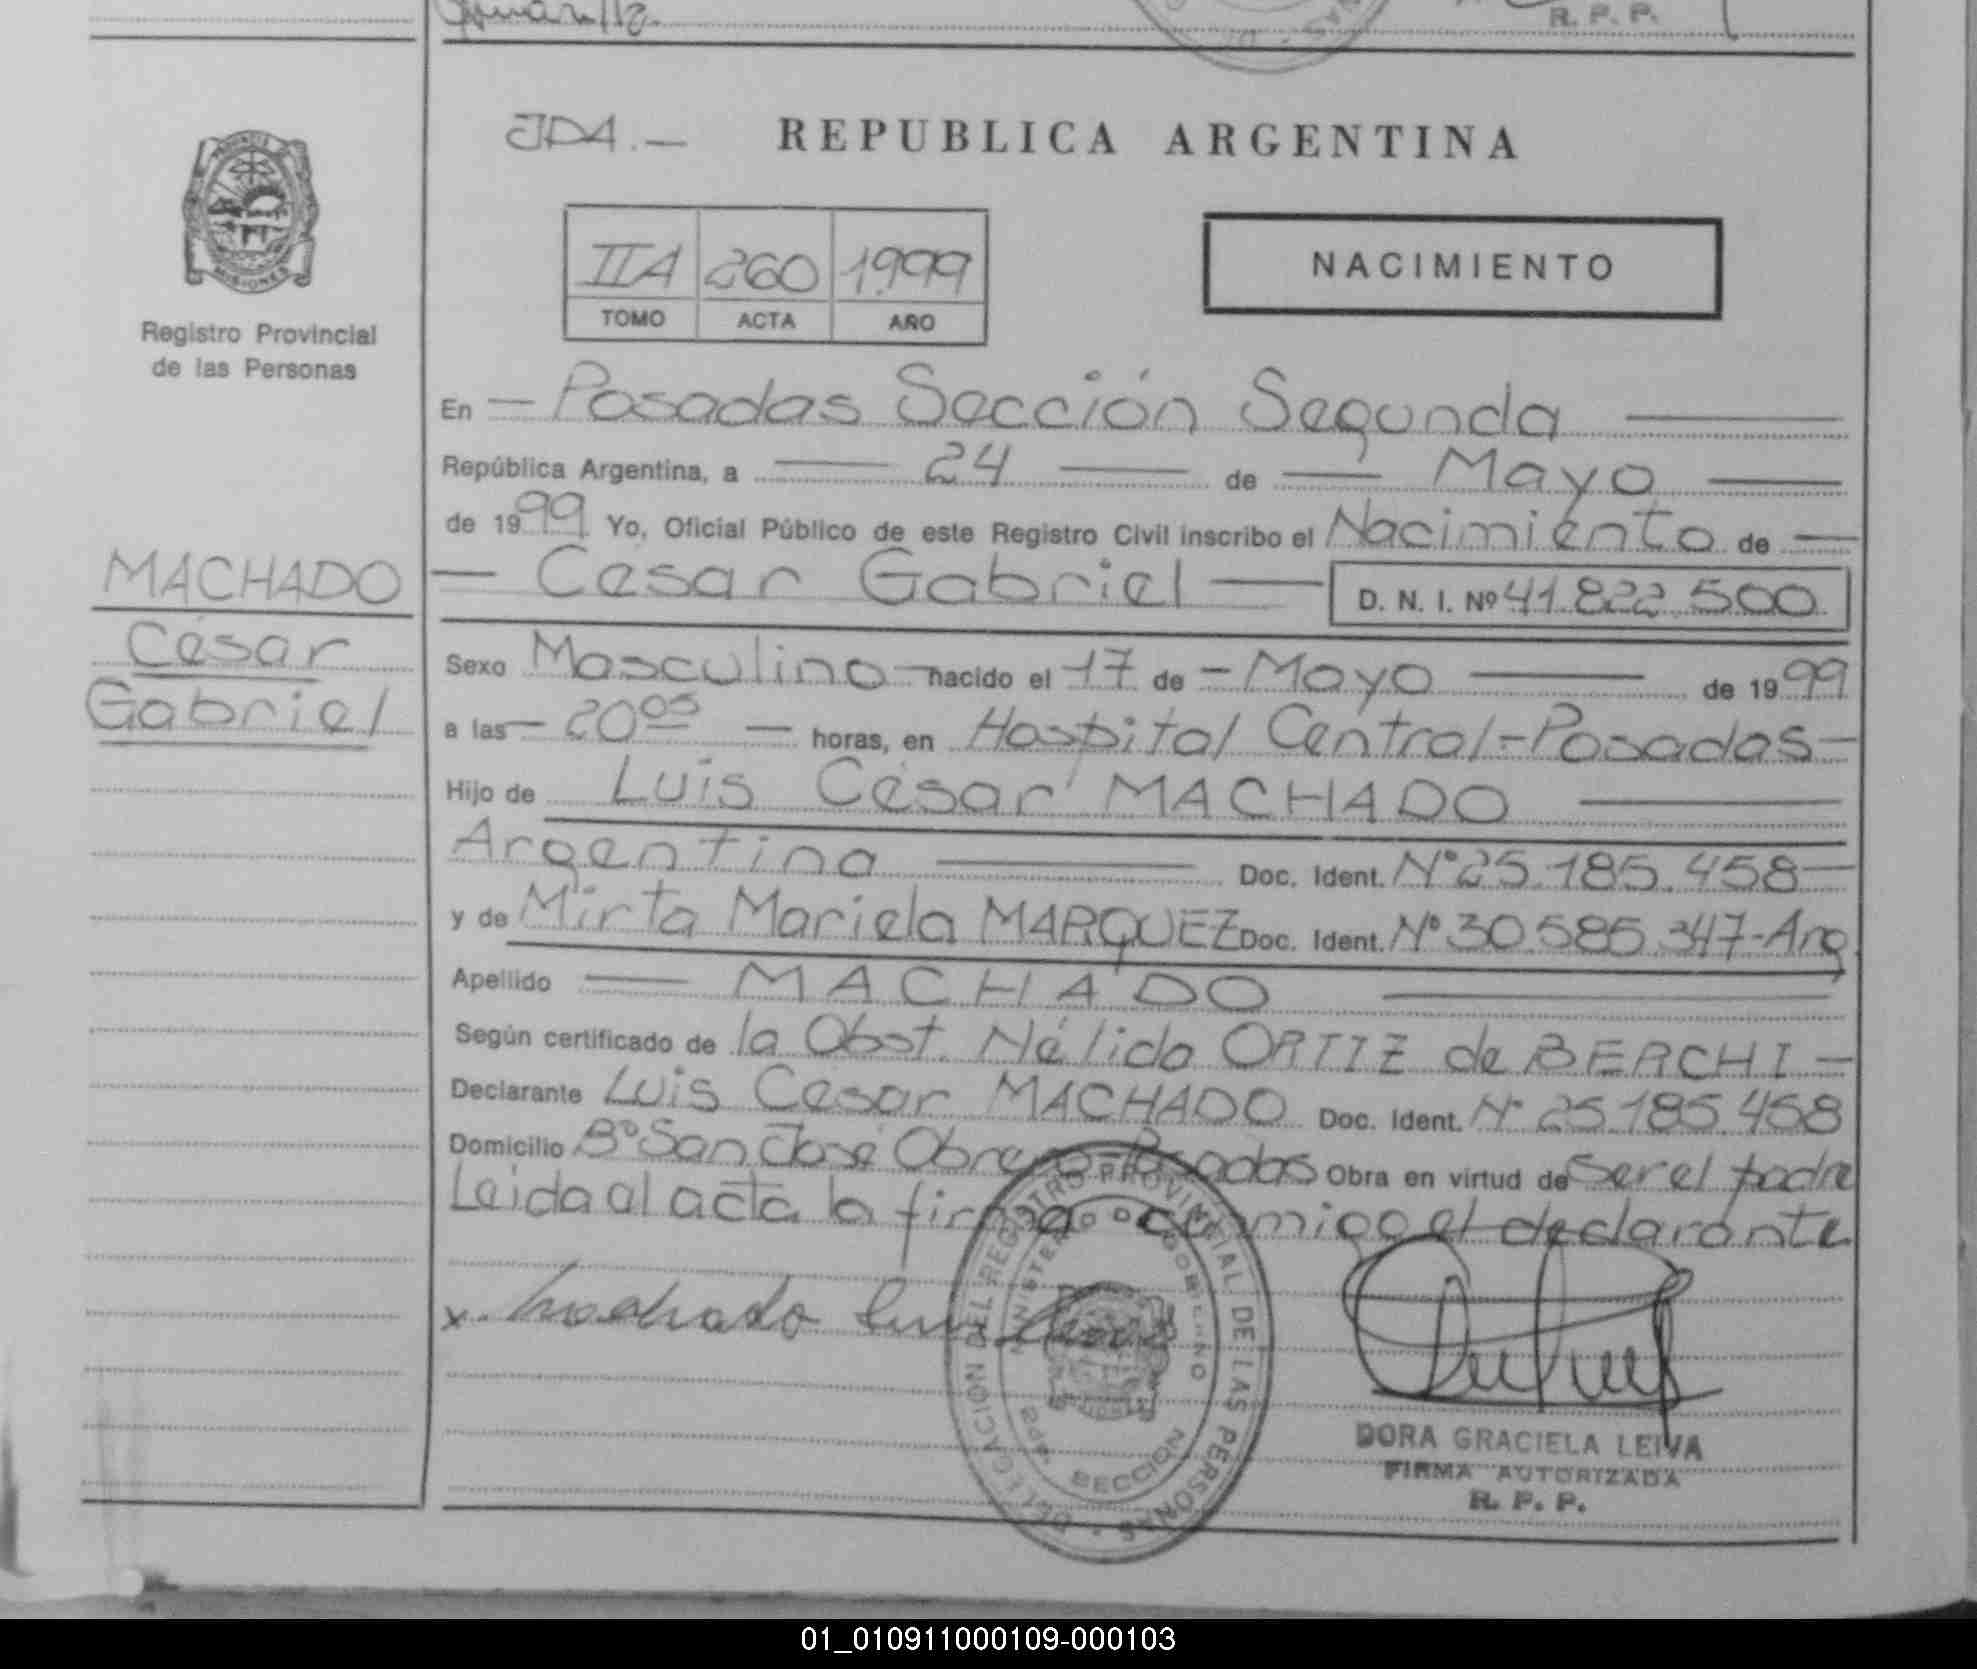 R. P. P.
JDA.-
REPUBLICA ARGENTINA
IIA 260 1999
TOMO ACTA AÑO
NACIMIENTO
MISIONES
Registro Provincial
de las Personas
En — Posadas Sección Segunda —
República Argentina, a — 24 — de — Mayo —
de 1999 Yo, Oficial Público de este Registro Civil inscribo el Nacimiento de —
— César Gabriel — D. N. I. Nº 41.822.500
MACHADO
César
Gabriel
Sexo Masculino — nacido el 17 de — Mayo — de 1999
a las — 20 05 — horas, en Hospital Central - Posadas —
Hijo de Luis César MACHADO —
Argentina — Doc. Ident. Nº 25.185.458 —
y de Mirta Mariela MARQUEZ Doc. Ident. Nº 30.585.347 - Arg
Apellido — MACHADO —
Según certificado de la Obst. Nélida ORTIZ de BERCHI —
Declarante Luis César MACHADO Doc. Ident. Nº 25.185.458
Domicilio Bº San José Obrero - Posadas Obra en virtud de Ser el padre
Leida al acta la firma conmigo el declarante
x. Machado Luis César
DELEGACION DEL REGISTRO PROVINCIAL DE LAS PERSONAS
MINISTERIO DE GOBIERNO
SECCION 2da.
DORA GRACIELA LEIVA
FIRMA AUTORIZADA
R. P. P.
01_010911000109-000103